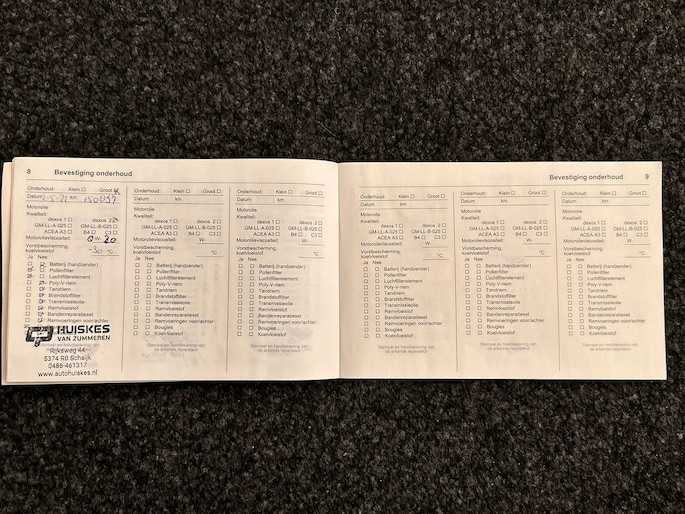 8 Bevestiging onderhoud
Onderhoud: Klein ☐ Groot ☒
Datum km 150097
Motorolie
Kwaliteit:
dexos 1 ☐ dexos 2
GM-LL-A-025 ☐ GM-LL-B-025 ☐
ACEA A3 ☐ B4 ☐ C3 ☐
Motorolieviscositeit: 0W-20
Vorstbescherming,
koelvloeistof -30 °C
Ja Nee
Batterij (handzender)
Pollenfilter
Luchtfilterelement
Poly-V-riem
Tandriem
Brandstoffilter
Transmissieolie
Remvloeistof
Bandenreparatieset
Remvoeringen voor/achter
HUISKES
VAN ZUMMEREN
Rijksweg 44
5374 RB Schaijk
0486-461317
www.autohuiskes.nl
Onderhoud: Klein ☐ Groot ☐
Datum km
Motorolie
Kwaliteit:
dexos 1 ☐ dexos 2 ☐
GM-LL-A-025 ☐ GM-LL-B-025 ☐
ACEA A3 ☐ B4 ☐ C3 ☐
Motorolieviscositeit: W-
Vorstbescherming,
koelvloeistof °C
Ja Nee
☐ ☐ Batterij (handzender)
☐ ☐ Pollenfilter
☐ ☐ Luchtfilterelement
☐ ☐ Poly-V-riem
☐ ☐ Tandriem
☐ ☐ Brandstoffilter
☐ ☐ Transmissieolie
☐ ☐ Remvloeistof
☐ ☐ Bandenreparatieset
☐ ☐ Remvoeringen voor/achter
☐ ☐ Bougies
☐ ☐ Koelvloeistof
Stempel en handtekening van
de erkende reparateur
Onderhoud: Klein ☐ Groot ☐
Datum km
Motorolie
Kwaliteit:
dexos 1 ☐ dexos 2 ☐
GM-LL-A-025 ☐ GM-LL-B-025 ☐
ACEA A3 ☐ B4 ☐ C3 ☐
Motorolieviscositeit: W-
Vorstbescherming,
koelvloeistof °C
Ja Nee
☐ ☐ Batterij (handzender)
☐ ☐ Pollenfilter
☐ ☐ Luchtfilterelement
☐ ☐ Poly-V-riem
☐ ☐ Tandriem
☐ ☐ Brandstoffilter
☐ ☐ Transmissieolie
☐ ☐ Remvloeistof
☐ ☐ Bandenreparatieset
☐ ☐ Remvoeringen voor/achter
☐ ☐ Bougies
☐ ☐ Koelvloeistof
Stempel en handtekening van
de erkende reparateur
Bevestiging onderhoud 9
Onderhoud: Klein ☐ Groot ☐
Datum km
Motorolie
Kwaliteit:
dexos 1 ☐ dexos 2 ☐
GM-LL-A-025 ☐ GM-LL-B-025 ☐
ACEA A3 ☐ B4 ☐ C3 ☐
Motorolieviscositeit: W-
Vorstbescherming,
koelvloeistof °C
Ja Nee
☐ ☐ Batterij (handzender)
☐ ☐ Pollenfilter
☐ ☐ Luchtfilterelement
☐ ☐ Poly-V-riem
☐ ☐ Tandriem
☐ ☐ Brandstoffilter
☐ ☐ Transmissieolie
☐ ☐ Remvloeistof
☐ ☐ Bandenreparatieset
☐ ☐ Remvoeringen voor/achter
☐ ☐ Bougies
☐ ☐ Koelvloeistof
Stempel en handtekening van
de erkende reparateur
Onderhoud: Klein ☐ Groot ☐
Datum km
Motorolie
Kwaliteit:
dexos 1 ☐ dexos 2 ☐
GM-LL-A-025 ☐ GM-LL-B-025 ☐
ACEA A3 ☐ B4 ☐ C3 ☐
Motorolieviscositeit: W-
Vorstbescherming,
koelvloeistof °C
Ja Nee
☐ ☐ Batterij (handzender)
☐ ☐ Pollenfilter
☐ ☐ Luchtfilterelement
☐ ☐ Poly-V-riem
☐ ☐ Tandriem
☐ ☐ Brandstoffilter
☐ ☐ Transmissieolie
☐ ☐ Remvloeistof
☐ ☐ Bandenreparatieset
☐ ☐ Remvoeringen voor/achter
☐ ☐ Bougies
☐ ☐ Koelvloeistof
Stempel en handtekening van
de erkende reparateur
Onderhoud: Klein ☐ Groot ☐
Datum km
Motorolie
Kwaliteit:
dexos 1 ☐ dexos 2 ☐
GM-LL-A-025 ☐ GM-LL-B-025 ☐
ACEA A3 ☐ B4 ☐ C3 ☐
Motorolieviscositeit: W-
Vorstbescherming,
koelvloeistof °C
Ja Nee
☐ ☐ Batterij (handzender)
☐ ☐ Pollenfilter
☐ ☐ Luchtfilterelement
☐ ☐ Poly-V-riem
☐ ☐ Tandriem
☐ ☐ Brandstoffilter
☐ ☐ Transmissieolie
☐ ☐ Remvloeistof
☐ ☐ Bandenreparatieset
☐ ☐ Remvoeringen voor/achter
☐ ☐ Bougies
☐ ☐ Koelvloeistof
Stempel en handtekening van
de erkende reparateur